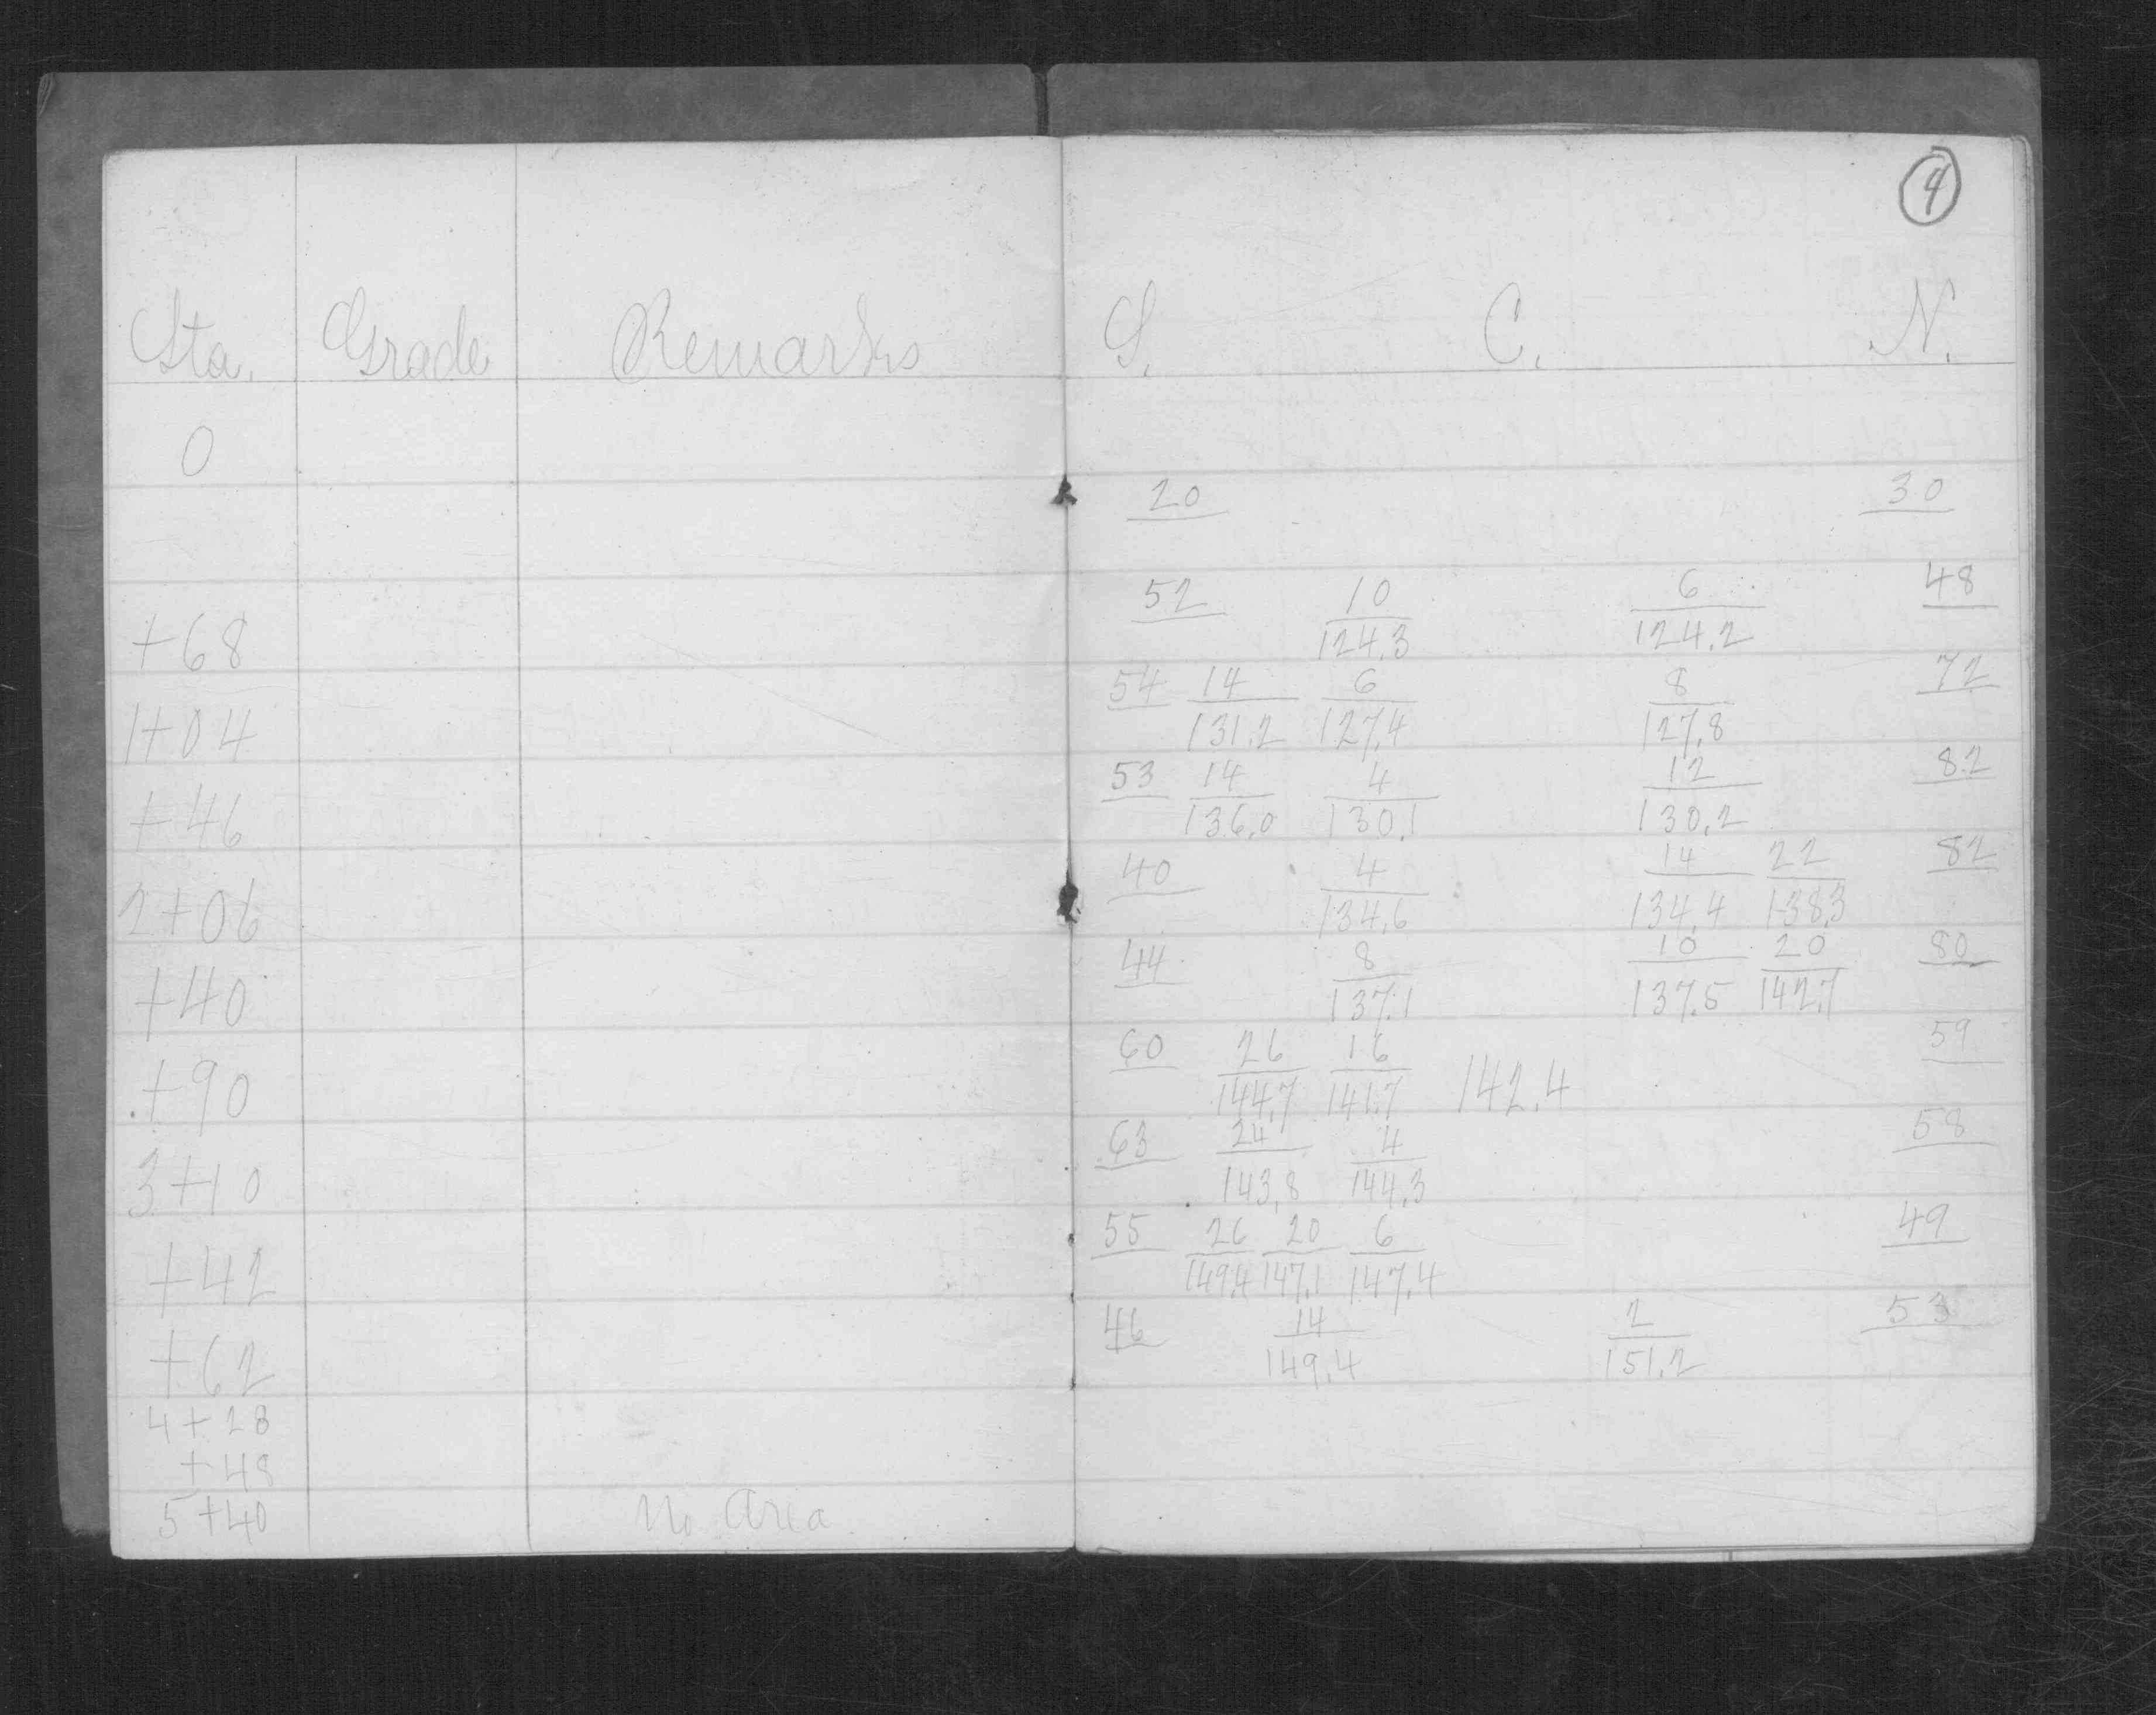 4
Sta. Grade Remarks S. C. N.
0
20 30
52 10 6 48
+68 124.3 124.2
54 14 6 8 72
1+04 131.2 127.4 127.8
53 14 4 12 82
+46 136.0 130.1 130.2
40 4 14 22 82
2+06 134.6 134.4 138.3
44 8 10 20 80
+40 137.1 137.5 142.7
60 26 16 59
+90 144.7 141.7 142.4
63 24 4 58
3+10 143.8 144.3
55 26 20 6 49
+42 149.4 147.1 147.4
46 14 2 53
+62 149.4 151.2
4+28
+48
5+40 No Area